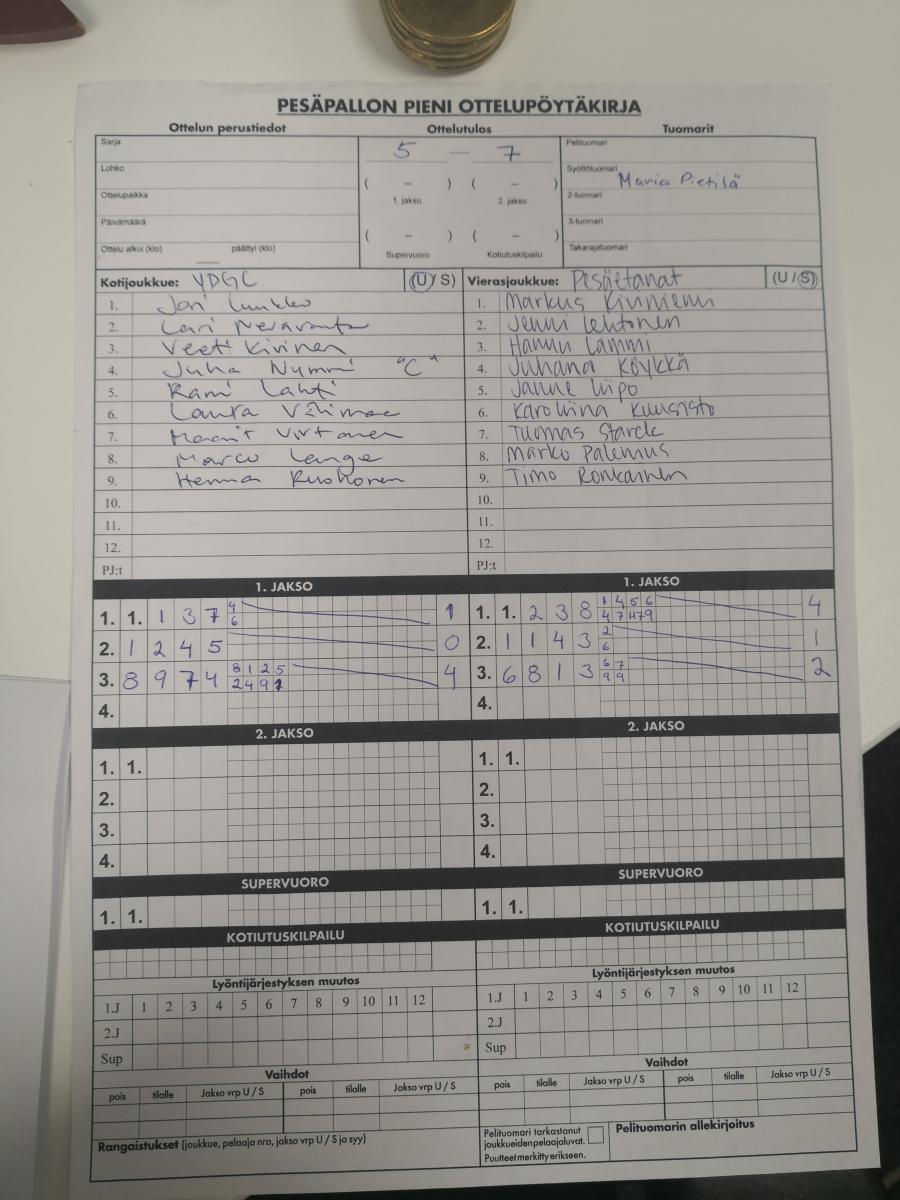 PESÄPALLON PIENI OTTELUPÖYTÄKIRJA
Ottelun perustiedot Ottelutulos Tuomarit
Sarja
Lohko
Ottelupaikka
Päivämäärä
Ottelu alkoi (klo) päättyi (klo)
5 — 7
( – ) ( – )
1. jakso 2. jakso
( – ) ( – )
Supervuoro Kotiutuskilpailu
Pelituomari
Syöttötuomari Maria Pietilä
2-tuomari
3-tuomari
Takarajatuomari
Kotijoukkue: YDGC (U/S)
1. Joni Luukko
2. Lari
3. Veeti Kivinen
4. Juha Nummi "C"
5. Rami Lahti
6. Laura Välimaa
7. Maarit Virtanen
8. Marco Lange
9. Henna Ruohonen
10.
11.
12.
PJ:t
Vierasjoukkue: Pesäetanat (U/S)
1. Markus Kinniemi
2. Jenni Lehtonen
3. Hannu Lammi
4. Juhana Köykkä
5. Janne Liipo
6. Karoliina Kuusisto
7. Tuomas Starck
8. Marko Palemus
9. Timo Ronkainen
10.
11.
12.
PJ:t
1. JAKSO
1. 1. 1 3 7 4 1
6
2. 1 2 4 5 0
3. 8 9 7 4 8 1 2 5 4
2 4 9 1
4.
1. JAKSO
1. 1. 2 3 8 1 4 5 6 4
4 7 9
2. 1 1 4 3 2 1
6
3. 6 8 1 3 6 7 2
9 9
4.
2. JAKSO
1. 1.
2.
3.
4.
2. JAKSO
1. 1.
2.
3.
4.
SUPERVUORO
1. 1.
SUPERVUORO
1. 1.
KOTIUTUSKILPAILU
KOTIUTUSKILPAILU
Lyöntijärjestyksen muutos
1.J 1 2 3 4 5 6 7 8 9 10 11 12
2.J
Sup
Lyöntijärjestyksen muutos
1.J 1 2 3 4 5 6 7 8 9 10 11 12
2.J
Sup
Vaihdot
pois tilalle Jakso vrp U / S pois tilalle Jakso vrp U / S
Vaihdot
pois tilalle Jakso vrp U / S pois tilalle Jakso vrp U / S
Rangaistukset (joukkue, pelaaja nro, jakso vrp U / S ja syy)
Pelituomari tarkastanut
joukkueiden pelaajaluvat.
Puutteet merkitty erikseen.
Pelituomarin allekirjoitus